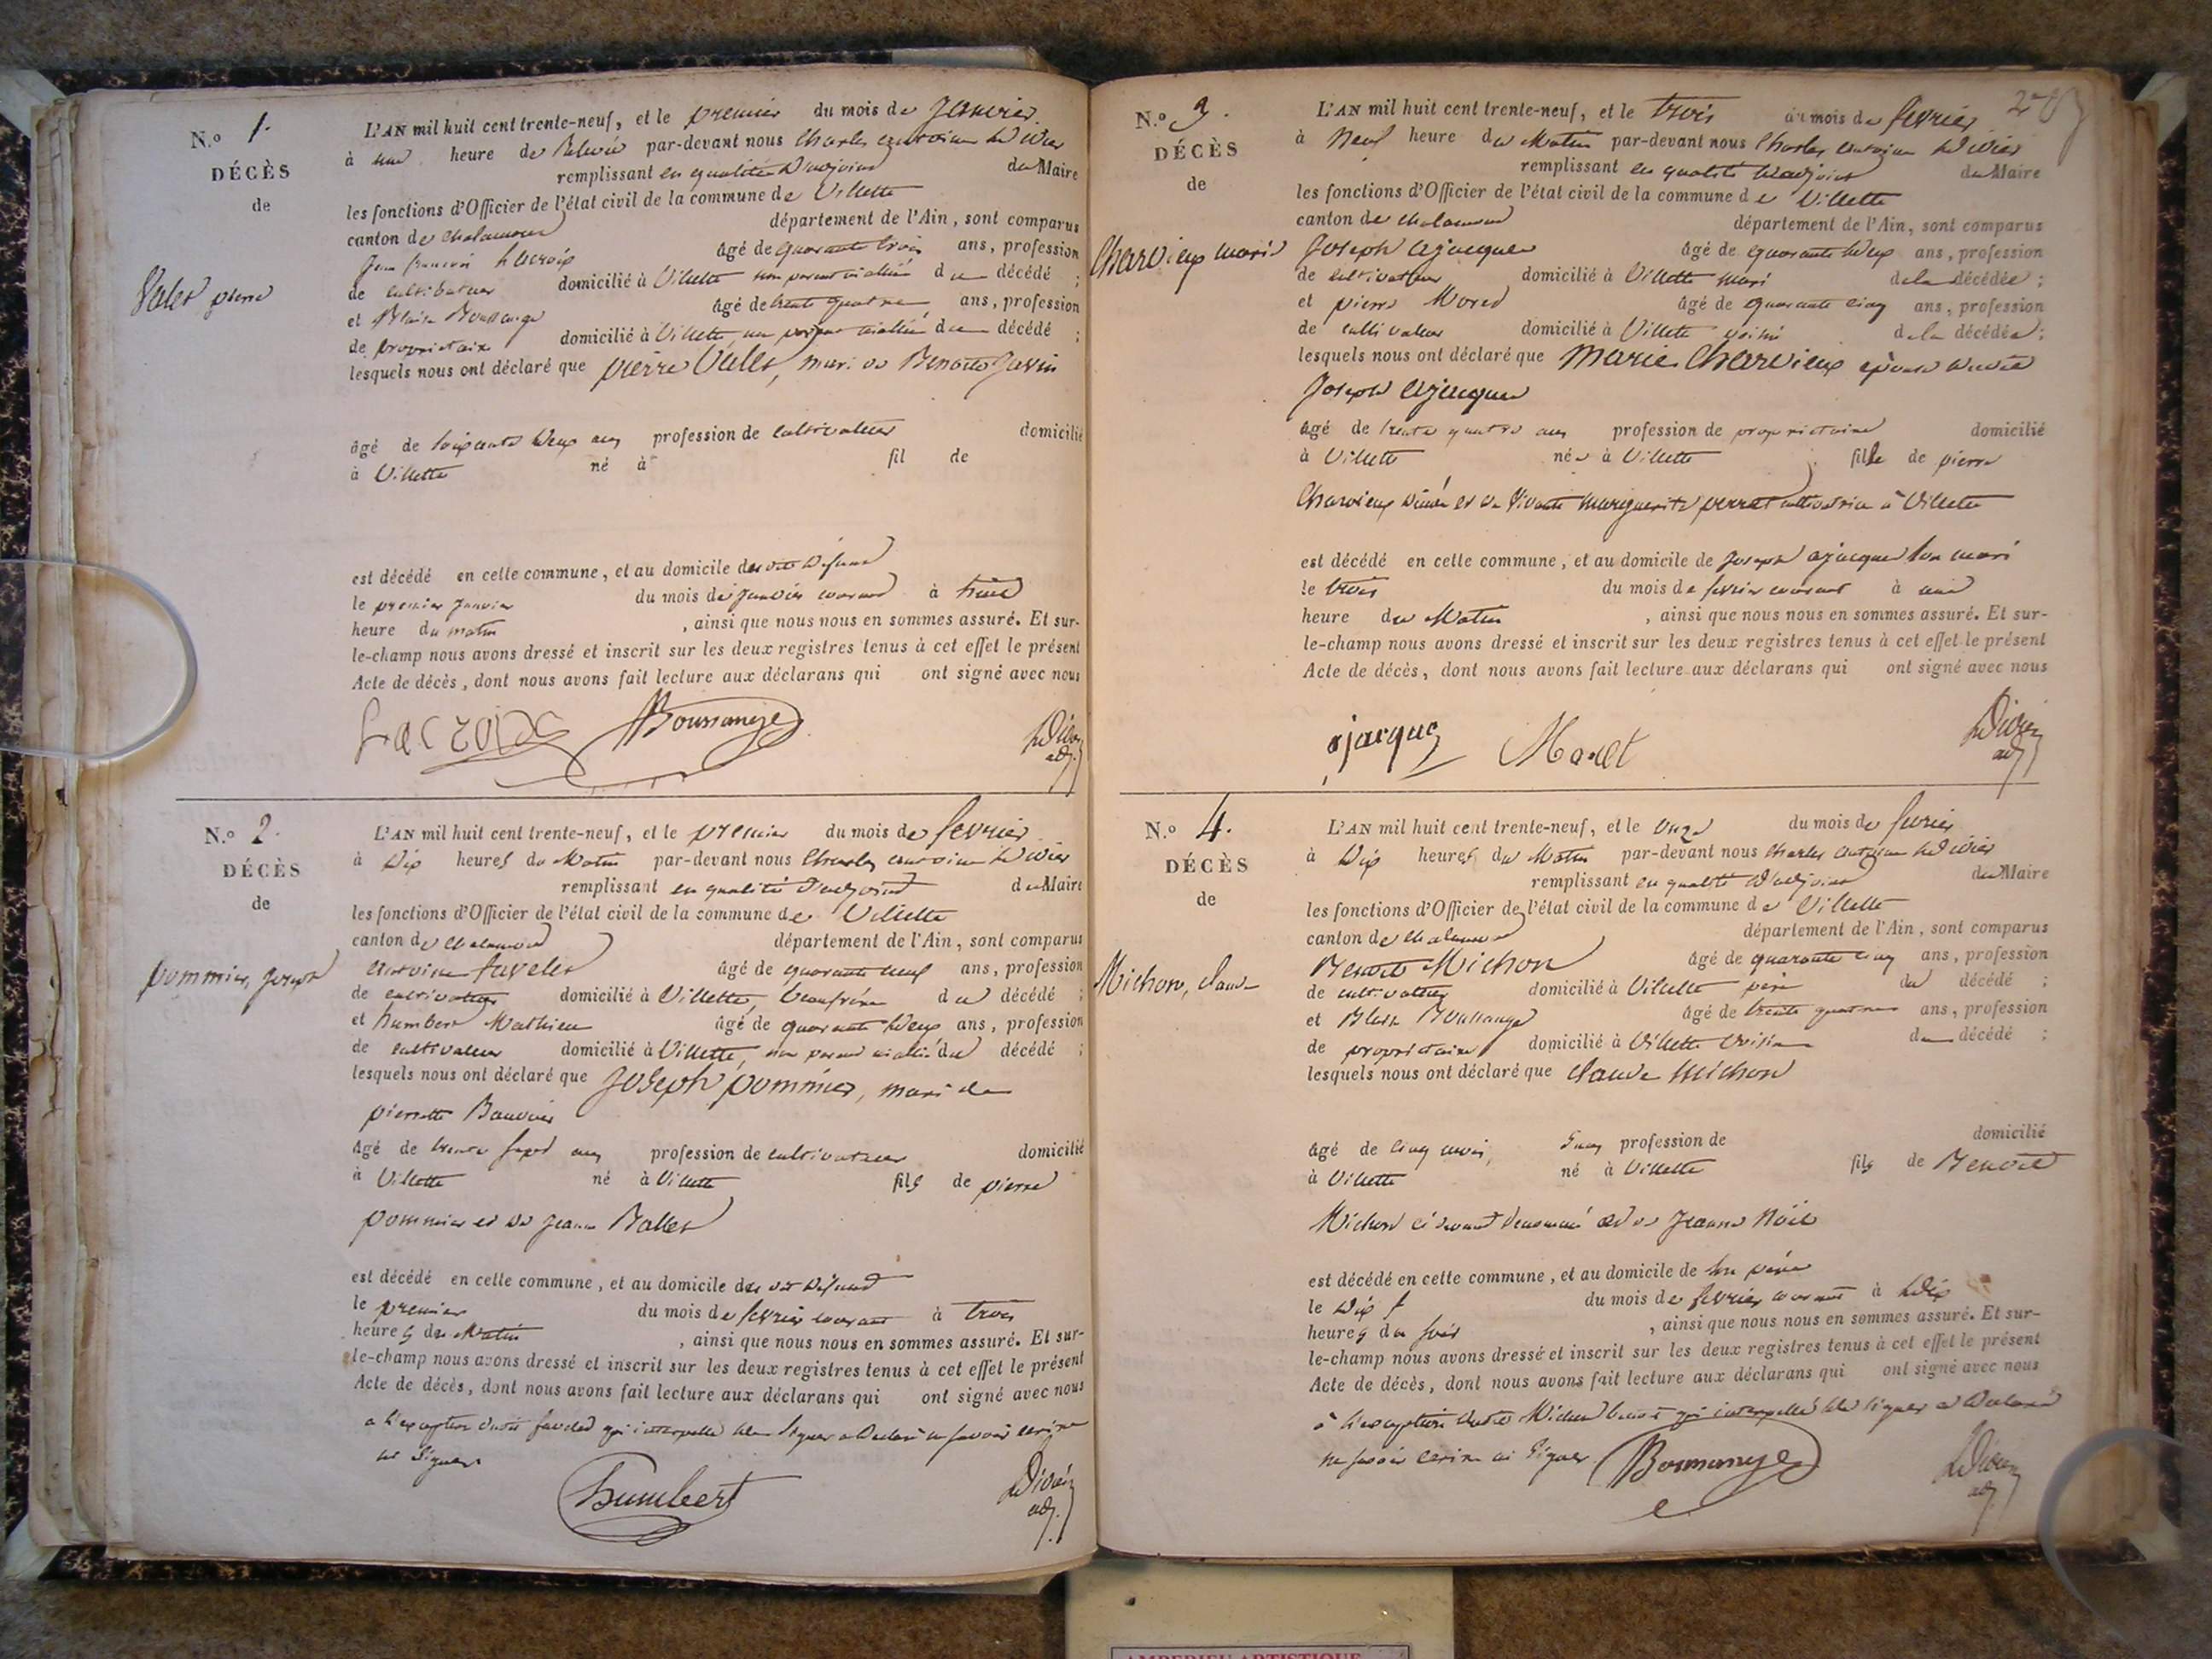 N.o 1.
DÉCÈS
de
Valet pierre
L'AN mil huit cent trente-neuf, et le premier du mois de Janvier
à une heure de Relevée par-devant nous Charles antoine Didier
remplissant en qualité d'adjoint du Maire
les fonctions d'Officier de l'état civil de la commune de Villette
canton de chalamont département de l'Ain, sont comparus
Jean francois Lacroix âgé de quarante trois ans, profession
de cultivateur domicilié à Villette non parent ni allié du décédé ;
et Blaise Boussange âgé de trente quatre ans, profession
de propriétaire domicilié à Villette, non parent ni allié, du décédé ;
lesquels nous ont déclaré que pierre Valet, mari de Benoite
âgé de soixante deux ans profession de cultivateur domicilié
à Villette né à fil de
est décédé en cette commune, et au domicile du dit défunt
le premier janvier du mois de janvier courant à
heure du matin , ainsi que nous nous en sommes assuré. Et sur-
le-champ nous avons dressé et inscrit sur les deux registres tenus à cet effet le présent
Acte de décès, dont nous avons fait lecture aux déclarans qui ont signé avec nous
Lacroix Boussange Didier
adj.
N.o 2.
DÉCÈS
de
pommier, joseph
L'AN mil huit cent trente-neuf, et le premier du mois de fevrier
à dix heures du Matin par-devant nous Charles antoine Didier
remplissant en qualité d'adjoint du Maire
les fonctions d'Officier de l'état civil de la commune de Villette
canton de chalamont département de l'Ain, sont comparus
antoine favelet âgé de quarante neuf ans, profession
de cultivateur domicilié à Villette, beaufrère du décédé ;
et humbert Mathieu âgé de quarante deux ans, profession
de cultivateur domicilié à Villette, non parent ni allié du décédé ;
lesquels nous ont déclaré que joseph pommier, mari de
pierrette
âgé de trente sept ans profession de cultivateur domicilié
à Villette né à Villette fils de pierre
pommier et de jeanne Ballet
est décédé en cette commune, et au domicile du dit défunt
le premier du mois de fevrier courant à trois
heures du Matin , ainsi que nous nous en sommes assuré. Et sur-
le-champ nous avons dressé et inscrit sur les deux registres tenus à cet effet le présent
Acte de décès, dont nous avons fait lecture aux déclarans qui ont signé avec nous
a l'exception dudit favelet qui interpellé de signer a declaré ne savoir ecrire
ni signer
Humbert Didier
adj.
N.o 3.
DÉCÈS
de
Charvieux marie
L'AN mil huit cent trente-neuf, et le trois du mois de fevrier
à Neuf heure du Matin par-devant nous Charles antoine Didier
remplissant en qualité d'adjoint du Maire
les fonctions d'Officier de l'état civil de la commune de Villette
canton de chalamont département de l'Ain, sont comparus
Joseph ajacques âgé de quarante deux ans, profession
de cultivateur domicilié à Villette mari de la décédée ;
et pierre Moret âgé de quarante cinq ans, profession
de cultivateur domicilié à Villette voisin de la décédée ;
lesquels nous ont déclaré que Marie Charvieux épouse dudit
Joseph ajacques
âgé de trente quatre ans profession de propriétaire domicilié
à Villette née à Villette fille de pierre
Charvieux et de vivante marguerite perrat cultivatrice à Villette
est décédé en cette commune, et au domicile de joseph ajacques son mari
le trois du mois de fevrier courant à une
heure du Matin , ainsi que nous nous en sommes assuré. Et sur-
le-champ nous avons dressé et inscrit sur les deux registres tenus à cet effet le présent
Acte de décès, dont nous avons fait lecture aux déclarans qui ont signé avec nous
ajacques Moret Didier
adj
N.o 4.
DÉCÈS
de
Michon, claude
L'AN mil huit cent trente-neuf, et le onze du mois de fevrier
à dix heures du Matin par-devant nous Charles antoine Didier
remplissant en qualité d'adjoint du Maire
les fonctions d'Officier de l'état civil de la commune de Villette
canton de chalamont département de l'Ain, sont comparus
Benoit Michon âgé de quarante cinq ans, profession
de cultivateur domicilié à Villette père du décédé ;
et Blaise Boussange âgé de trente quatre ans, profession
de propriétaire domicilié à Villette voisin du décédé ;
lesquels nous ont déclaré que claude Michon
âgé de cinq mois, sans profession de domicilié
à Villette né à Villette fils de Benoit
Michon ci devant denommé et de Jeanne Noël
est décédé en cette commune, et au domicile de son père
le dix du mois de fevrier courant à dix
heures du soir , ainsi que nous nous en sommes assuré. Et sur-
le-champ nous avons dressé et inscrit sur les deux registres tenus à cet effet le présent
Acte de décès, dont nous avons fait lecture aux déclarans qui ont signé avec nous
à l'exception dudit Michon benoit qui interpellé de signer a declaré
ne savoir ecrire ni signer Boussange Didier
adj.
AMBERIEU ARTISTIQUE